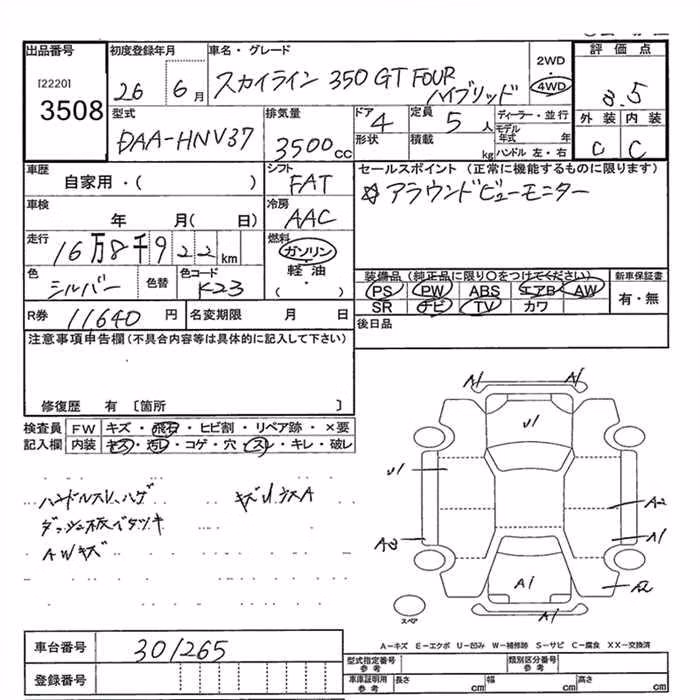 出品番号
[2220]
3508
初度登録年月
26 6月
車名・グレード
スカイライン 350 GT FOUR
ハイブリッド
2WD
・
4WD
評価点
3.5
外装 内装
C C
型式
DAA-HNV37
排気量
3500cc
ドア
4
形状
定員
5人
積載
kg
ディーラー・並行
モデル年式 年
ハンドル 左・右
車歴
自家用・( )
シフト
FAT
車検
年 月( 日)
冷房
AAC
走行
16万8千922km
燃料
ガソリン
・
軽油
( ・ )
色
シルバー
色替
色コード
K23
R券 11640 円
名変期限 月 日
セールスポイント(正常に機能するものに限ります)
☆アラウンドビューモニター
装備品(純正品に限り○をつけてください)
PS PW ABS エアB AW
SR ナビ TV カワ
新車保証書
有・無
後日品
注意事項申告欄(不具合内容等は具体的に記入して下さい)
修復歴 有 〔箇所 〕
検査員
記入欄
FW キズ・飛石・ヒビ割・リペア跡・×要
内装 キズ・汚レ・コゲ・穴・スレ・キレ・破レ
ハンドルスレ、ハゲ
ダッシュ板イタツキ
AWキズ
A1 A1
U1
U1
A2
A1
A1
A2
A1
スペア
A-キズ E-エクボ U-凹み W-補修跡 S-サビ C-腐食 XX-交換済
車台番号 301265
登録番号
型式指定番号
参考
類別区分番号
参考
車庫証明用
参考
長さ cm
幅 cm
高さ cm